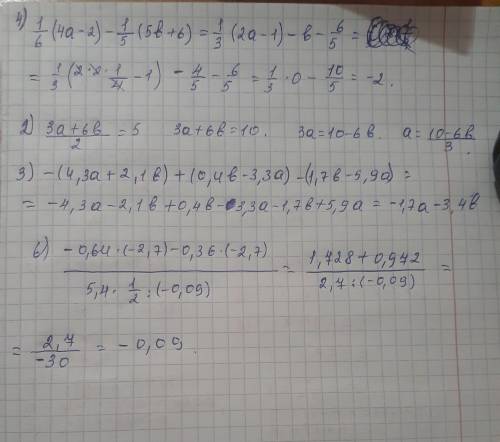 4) 1/6 (4a-2) - 1/5 (5b+6) = 1/3 (2a-1) - b - 6/5 =
= 1/3 (2·2·1/4 - 1) - 4/5 - 6/5 = 1/3 · 0 - 10/5 = -2.
2) (3a+6b)/2 = 5 3a+6b=10. 3a=10-6b. a= (10-6b)/3.
3) -(4,3a+2,1b)+(0,4b-3,3a)-(1,7b-5,9a)=
= -4,3a-2,1b+0,4b-3,3a-1,7b+5,9a = -1,7a-3,4b
6) (-0,64·(-2,7)-0,36·(-2,7))/(5,4·1/2:(-0,09)) = (1,728+0,942)/(2,7:(-0,09)) =
= 2,7/-30 = -0,09.